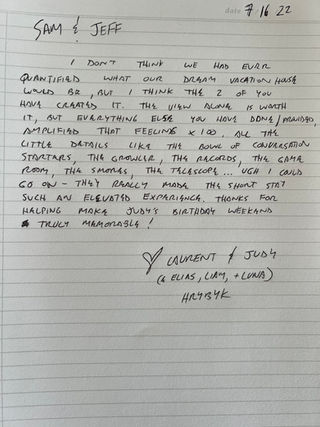 date 7·16·22
SAM & JEFF
I DON'T THINK WE HAD EVER
QUANTIFIED WHAT OUR DREAM VACATION HOUSE
WOULD BE, BUT I THINK THE 2 OF YOU
HAVE CREATED IT. THE VIEW ALONE IS WORTH
IT, BUT EVERYTHING ELSE YOU HAVE DONE/PROVIDED,
AMPLIFIED THAT FEELING x 100. ALL THE
LITTLE DETAILS LIKE THE BOWL OF CONVERSATION
STARTERS, THE GROWLER, THE RECORDS, THE GAME
ROOM, THE SMORES, THE TELESCOPE... UGH I COULD
GO ON - THEY REALLY MADE THE SHORT STAY
SUCH AN ELEVATED EXPERIENCE. THANKS FOR
HELPING MAKE JUDY'S BIRTHDAY WEEKEND
TRULY MEMORABLE!
♡ LAURENT & JUDY
(& ELIAS, LIAM, + LUNA)
HRYBYK